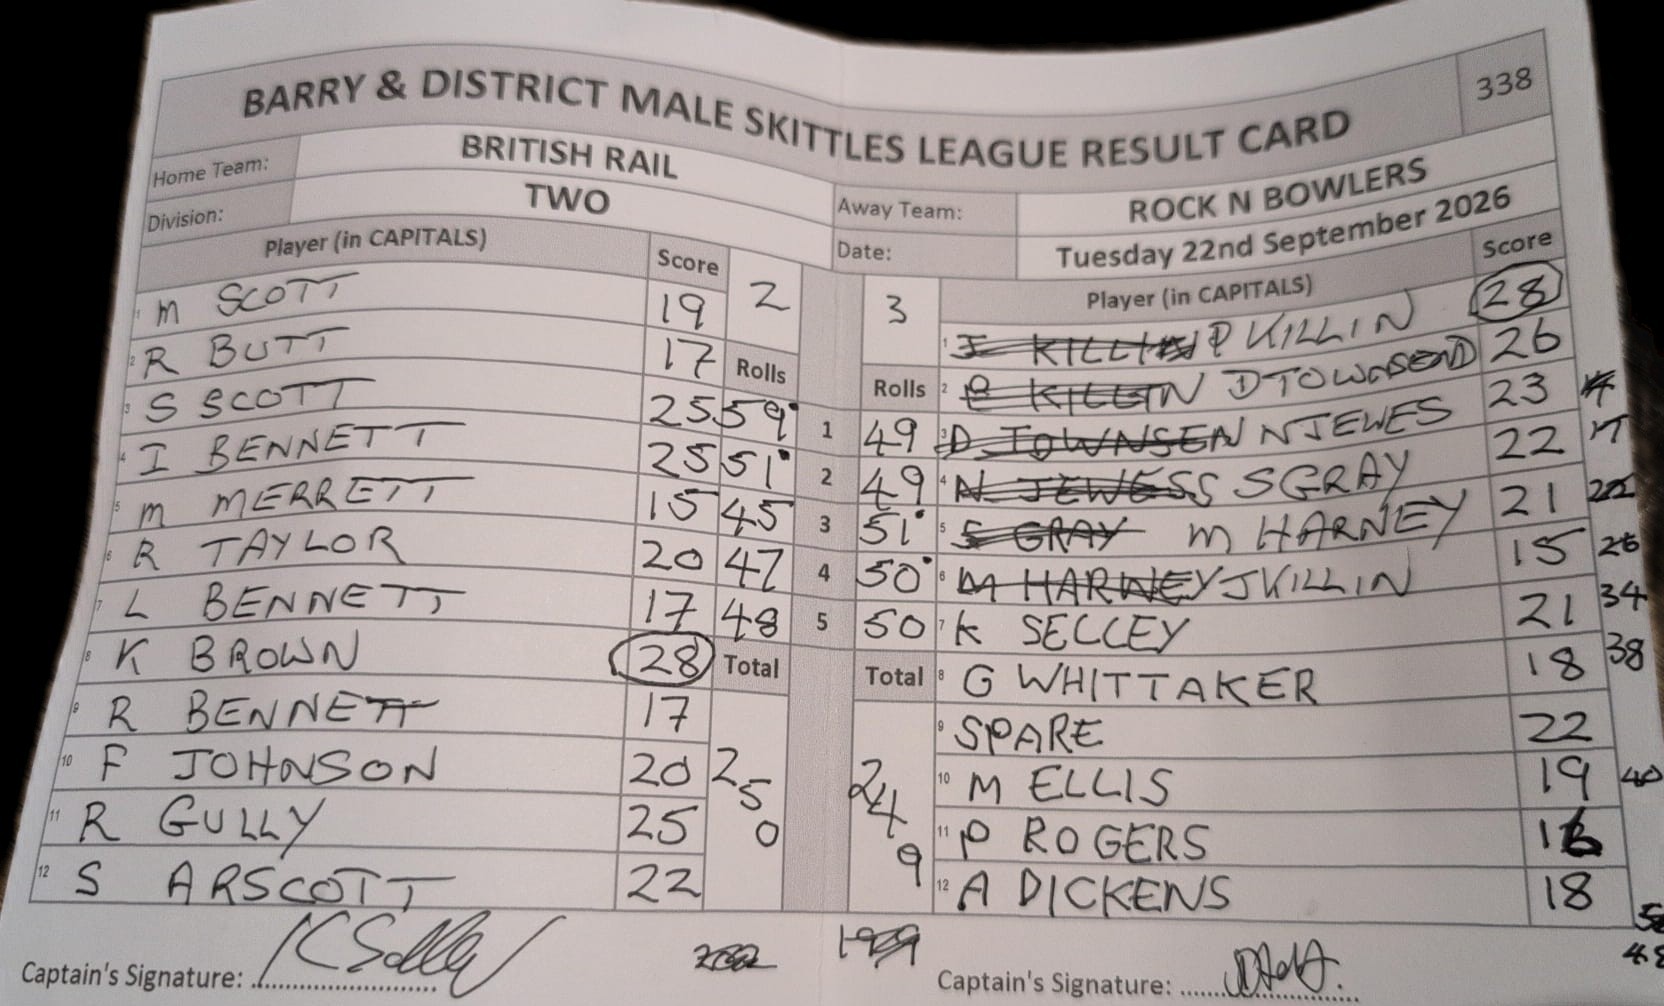 338
BARRY & DISTRICT MALE SKITTLES LEAGUE RESULT CARD
Home Team: BRITISH RAIL
Away Team: ROCK N BOWLERS
Division: TWO
Date: Tuesday 22nd September 2026
Player (in CAPITALS) Score
1 M SCOTT 19
2 R BUTT 17
3 S SCOTT 25
4 I BENNETT 25
5 M MERRETT 15
6 R TAYLOR 20
7 L BENNETT 17
8 K BROWN 28
9 R BENNETT 17
10 F JOHNSON 20
11 R GULLY 25
12 S ARSCOTT 22
2 3
Rolls Rolls
59 1 49
51 2 49
45 3 51
47 4 50
48 5 50
Total Total
250 249
Player (in CAPITALS) Score
1 J KILLIN P KILLIN 28
2 P KILLIN D TOWNSEND 26
3 D TOWNSEN N JEWES 23
4 N JEWESS S GRAY 22
5 S GRAY M HARNEY 21
6 M HARNEY J KILLIN 15
7 K SELLEY 21
8 G WHITTAKER 18
9 SPARE 22
10 M ELLIS 19
11 P ROGERS 16
12 A DICKENS 18
34
38
40
48
Captain's Signature:
199
Captain's Signature: